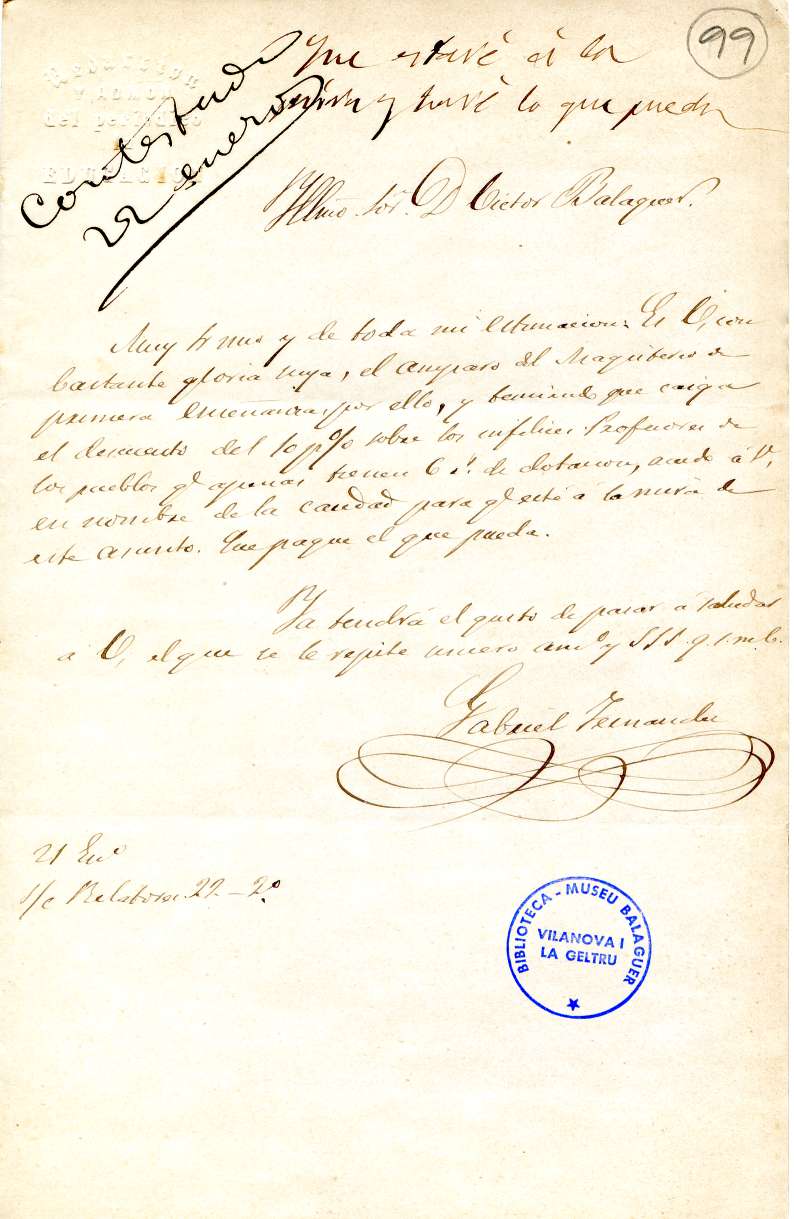 99
Que estaré á la
mira y haré lo que pueda
Contestada
22 enero
Redaccion
y Admon
del periódico
EDUCACION
Yllmo Sor. D Victor Balaguer.
Muy Sr mio y de toda mi estimacion: Es V, con
bastante gloria suya, el amparo del Magisterio de
primera enseñanza, por ello, y temiendo que caiga
el descuento del 10 p% sobre los infelices Profesores de
los pueblos qe apenas tienen 6 rs. de dotacion, acudo á V,
en nombre de la caridad para qe esté á la mira de
este asunto. Que pague el que pueda.
Ya tendrá el gusto de pasar á saludar
a V, el que se le repite sincero amo y SSS q. s. m. b.
Gabriel Fernandez
21 Eno
S/c Relatores. 22. - 2º
BIBLIOTECA - MUSEU BALAGUER
VILANOVA I
LA GELTRU